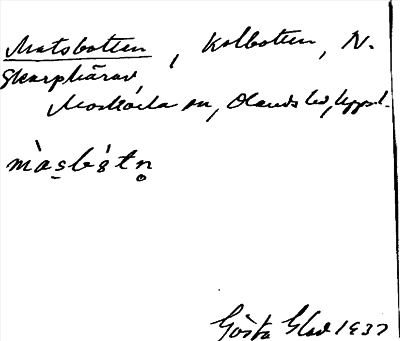 Matsbotten, Kolbotten, N.
Skarphärav,
Morkarla sn, Olands hd, Uppl.
màsbòtn̥
Gösta Glad 1937